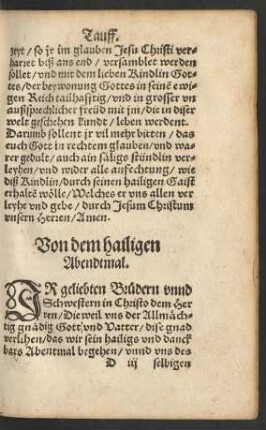 Tauff.
zeyt / so jr im glauben Jesu Christi ver-
harret biß ans end / versamblet werden
sollet / vnd mit dem lieben Kindlin Got-
tes / der beywonung Gottes in seinē ewi-
gen Reich taulhafftig / vnd in grosser vn
außsprechlicher freüd mit jm / die in diser
welt geschehen kundt / leben werdent.
Darumb sollent jr vil mehr bitten / das
euch Gott in rechtem glauben / vnd wa-
rer gedult / auch ain säligs stündlin ver-
leyhen / vnd wider alle anfechtung / wie
diß Kindlin / durch seinen hailigen Gaist
erhaltē wölle / Welches er vns allen ver
leyhe vnd gebe / durch Jesum Christum
vnsern Herren / Amen.
Von dem hailigen
Abendtmal.
IR geliebten Brüdern vnnd
Schwestern in Christo dem Her
ren / Die weil vns der Allmäch-
tig gnädig Gott vnd Vatter / dise gnad
verlihen / das wir sein hailigs vnd danck
bars Abentmal begehen / vnnd vns des
D iij selbigen